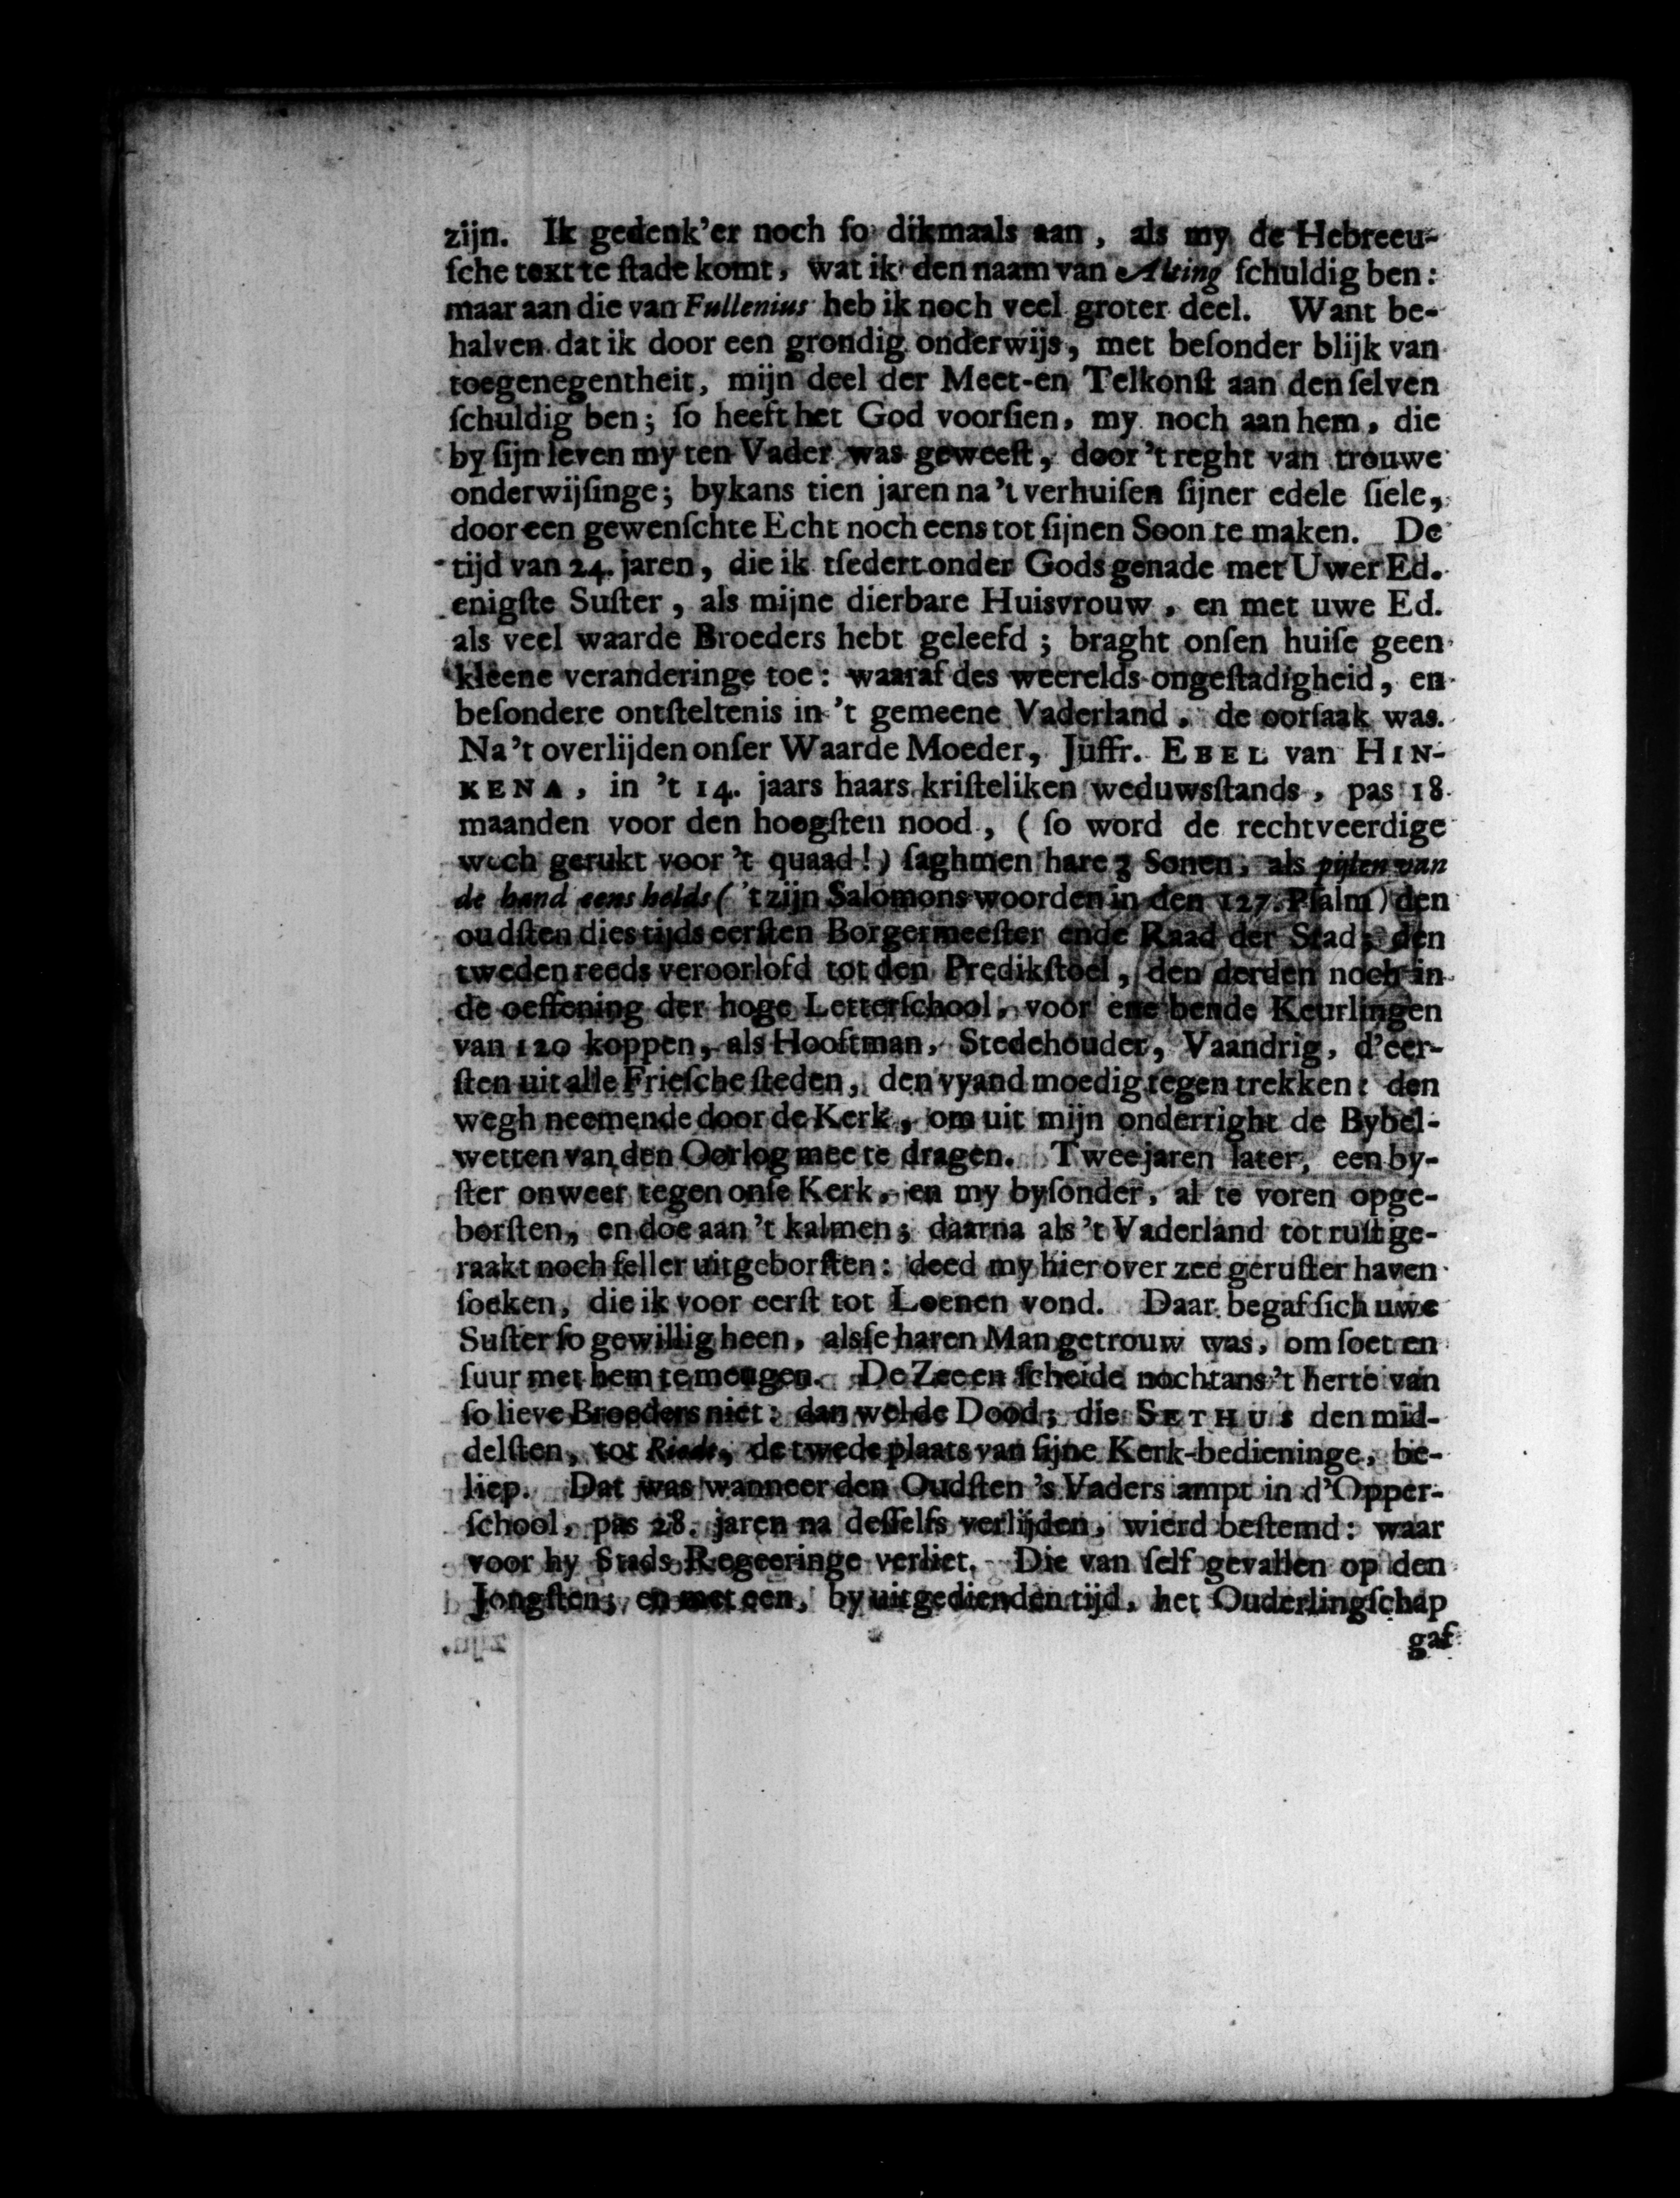 zijn. Ik gedenk'er noch ſo dikmaals aan, als my de Hebreeu-
ſche text te ſtade komt, wat ik den naam van Alting ſchuldig ben:
maar aan die van Fullenius heb ik noch veel groter deel. Want be-
halven dat ik door een grondig onderwijs, met beſonder blijk van
toegenegentheit, mijn deel der Meet-en Telkonſt aan den ſelven
ſchuldig ben; ſo heeft het God voorſien, my noch aan hem, die
by ſijn leven my ten Vader was geweeſt, door 't reght van trouwe
onderwijſinge; bykans tien jaren na 't verhuiſen ſijner edele ſiele,
door een gewenſchte Echt noch eens tot ſijnen Soon te maken. De
tijd van 24. jaren, die ik tſedert onder Gods genade met Uwer Ed.
enigſte Suſter, als mijne dierbare Huisvrouw, en met uwe Ed.
als veel waarde Broeders hebt geleefd; braght onſen huiſe geen
kleene veranderinge toe: waaraf des weerelds ongeſtadigheid, en
beſondere ontſteltenis in 't gemeene Vaderland, de oorſaak was.
Na 't overlijden onſer Waarde Moeder, Juffr. EBEL van HIN-
KENA, in 't 14. jaars haars kriſteliken weduwsſtands, pas 18
maanden voor den hoogſten nood, (ſo word de rechtveerdige
wech gerukt voor 't quaad!) ſaghmen hare 3 Sonen, als pijlen van
de hand eens helds ('t zijn Salomons woorden in den 127. Pſalm) den
oudſten dies tijds eerſten Borgermeeſter ende Raad der Stad; den
tweden reeds veroorlofd tot den Predikſtoel, den derden noch in
de oeffening der hoge Letterſchool, voor ene bende Keurlingen
van 120 koppen, als Hooftman, Stedehouder, Vaandrig, d'eer-
ſten uit alle Frieſche ſteden, den vyand moedig tegen trekken: den
wegh neemende door de Kerk, om uit mijn onderright de Bybel-
wetten van den Oorlog mee te dragen. Twee jaren later, een by-
ſter onweer tegen onſe Kerk, en my byſonder, al te voren opge-
borſten, en doe aan 't kalmen; daarna als 't Vaderland tot ruſt ge-
raakt noch feller uitgeborſten: deed my hier over zee geruſter haven
ſoeken, die ik voor eerſt tot Loenen vond. Daar begaf ſich uwe
Suſter ſo gewillig heen, alsſe haren Man getrouw was, om ſoet en
ſuur met hem te mengen. De Zee en ſcheide nochtans 't herte van
ſo lieve Broeders niet: dan wel de Dood; die SETHUS den mid-
delſten, tot Riede, de twede plaats van ſijne Kerk-bedieninge, be-
liep. Dat was wanneer den Oudſten 's Vaders ampt in d'Opper-
ſchool, pas 28. jaren na deſſelfs verlijden, wierd beſtemd: waar
voor hy Stads Regeeringe verliet. Die van ſelf gevallen op den
Jongſten; en met een, by uitgedienden tijd, het Ouderlingſchap
gaf